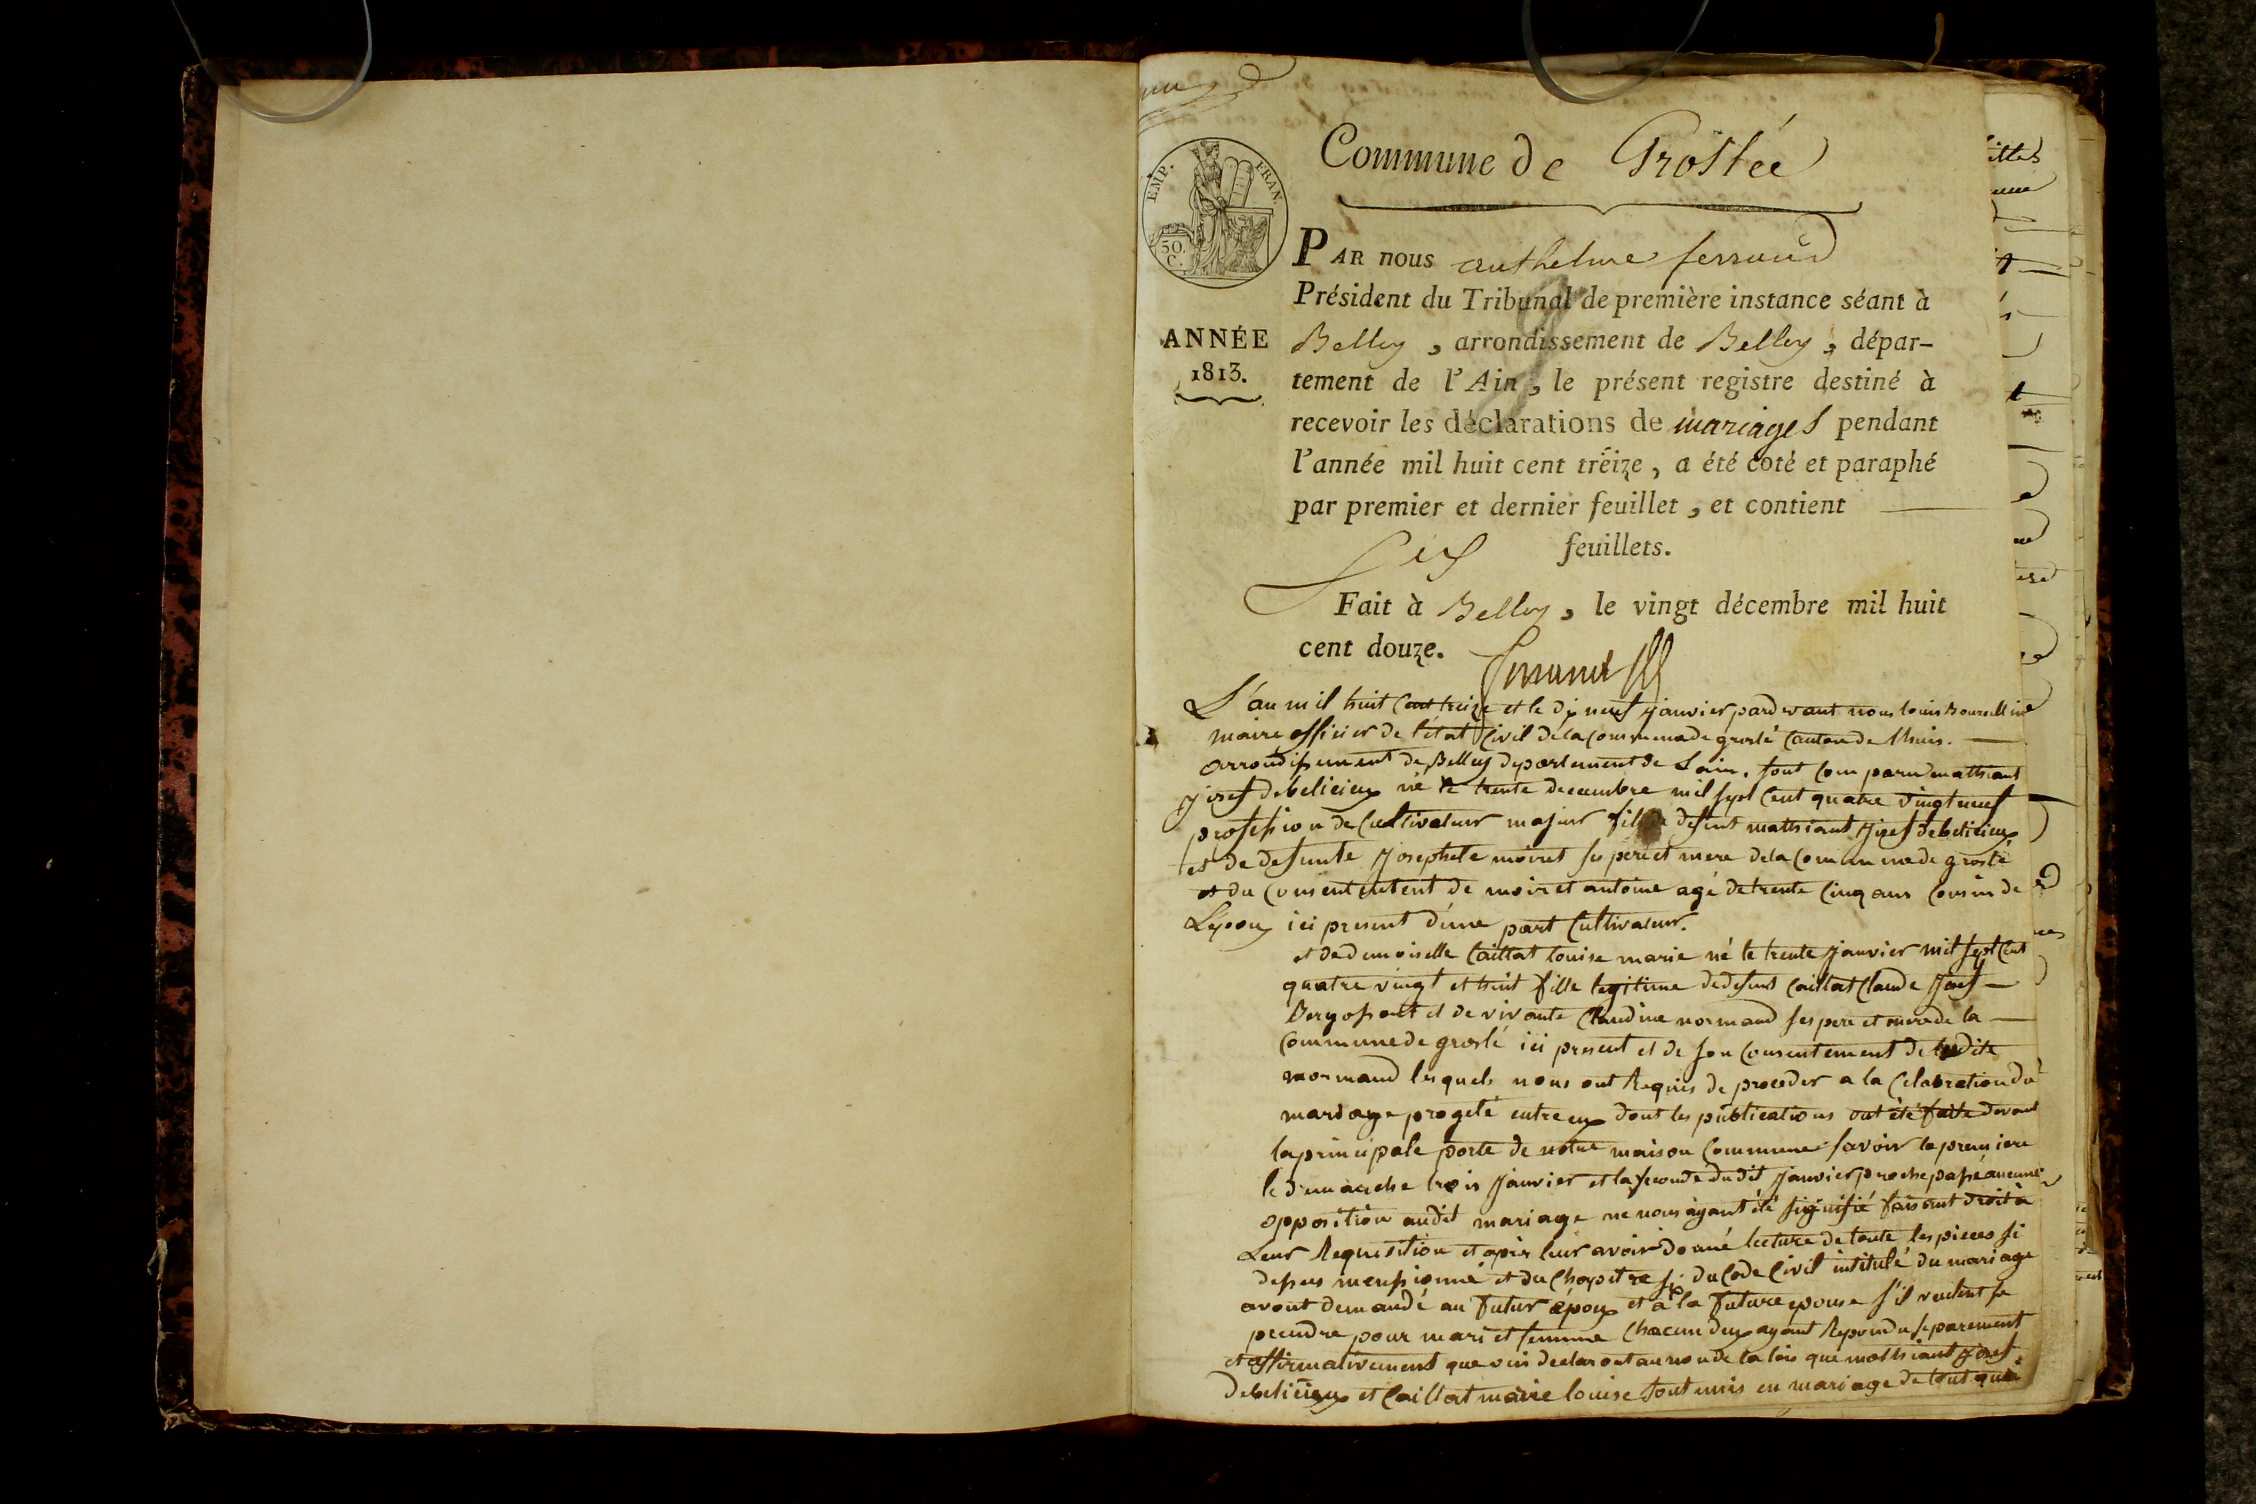 Commune de Groslée
EMP. FRAN.
50. C.
PAR nous anthelme ferraud
Président du Tribunal de première instance séant à
ANNÉE
1813.
Belley, arrondissement de Belley, dépar-
tement de l'Ain, le présent registre destiné à
recevoir les déclarations de mariages pendant
l'année mil huit cent treize, a été coté et paraphé
par premier et dernier feuillet, et contient
six feuillets.
Fait à Belley, le vingt décembre mil huit
cent douze.
L'an mil huit Cent treize et le dix neuf janvier pardevant nous louis
maire officier de l'état Civil de la Commune de groslé Canton de lhuis.
arrondissement de Belley departement de Lain. sont Comparu mathiant
josef debelicieux né le trente decembre mil sept Cent quatre vingt neuf
profession de Cultivateur majeur fils de defunt mathiant josef debelicieux
et de defunte josephete moiret ses pere et mere de la Commune de groslé
et du Consentement de moiret antoine agé de trente Cinq ans Cousin de
Lepoux ici present d'une part Cultivateur.
et de demoiselle Caillat louise marie né le trente janvier mil sept Cent
quatre vingt et huit fille legitime de defunt Caillat Claude josef
et de vivante Claudine normand ses pere et mere de la
Commune de groslé ici present et de son Consentement de ladite
normand lesquels nous ont Requis de proceder a la Celabration du
mariage progeté entre eux dont les publications ont été faite devant
la principale porte de notre maison Commune savoir la premiere
le dimanche trois janvier et la seconde dudit janvier proche passé aucune
opposition audit mariage ne nous ayant été signifié faisant droit à
Leur Requisition et apres leur avoir donné lecture de toute les pieces si
dessus mensionné et du Chapitre six du Code Civil intitulé du mariage
avont demandé au futur époux et à la future epouse s'il veulent se
prendre pour mari et femme Chacun deux ayant Repondu separement
et affirmativement que oui declaront au nom de la lois que mathiant josef
debelicieux et Caillat marie louise sont unis en mariage de tout quoi